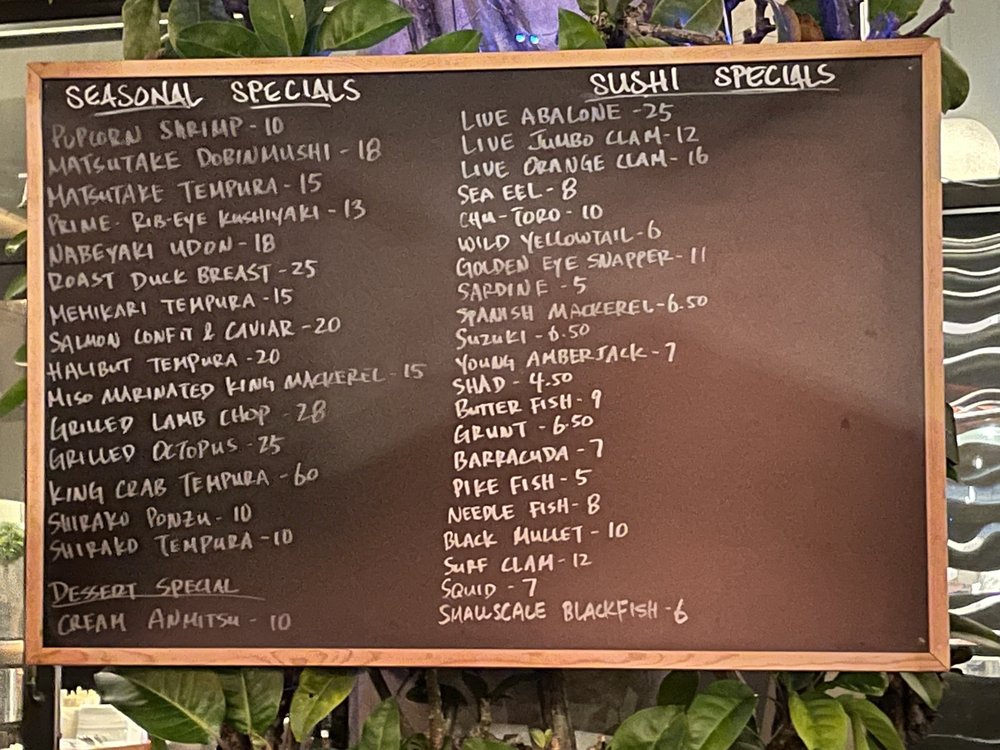 SEASONAL SPECIALS
POPCORN SHRIMP - 10
MATSUTAKE DOBINMUSHI - 18
MATSUTAKE TEMPURA - 15
PRIME RIB-EYE KUSHIYAKI - 13
NABEYAKI UDON - 18
ROAST DUCK BREAST - 25
MEHIKARI TEMPURA - 15
SALMON CONFIT & CAVIAR - 20
HALIBUT TEMPURA - 20
MISO MARINATED KING MACKEREL - 15
GRILLED LAMB CHOP - 28
GRILLED OCTOPUS - 25
KING CRAB TEMPURA - 60
SHIRAKO PONZU - 10
SHIRAKO TEMPURA - 10
DESSERT SPECIAL
CREAM ANMITSU - 10
SUSHI SPECIALS
LIVE ABALONE - 25
LIVE JUMBO CLAM - 12
LIVE ORANGE CLAM - 16
SEA EEL - 8
CHU-TORO - 10
WILD YELLOWTAIL - 6
GOLDEN EYE SNAPPER - 11
SARDINE - 5
SPANISH MACKEREL - 6.50
SUZUKI - 6.50
YOUNG AMBERJACK - 7
SHAD - 4.50
BUTTER FISH - 9
GRUNT - 6.50
BARRACUDA - 7
PIKE FISH - 5
NEEDLE FISH - 8
BLACK MULLET - 10
SURF CLAM - 12
SQUID - 7
SMALLSCALE BLACKFISH - 6